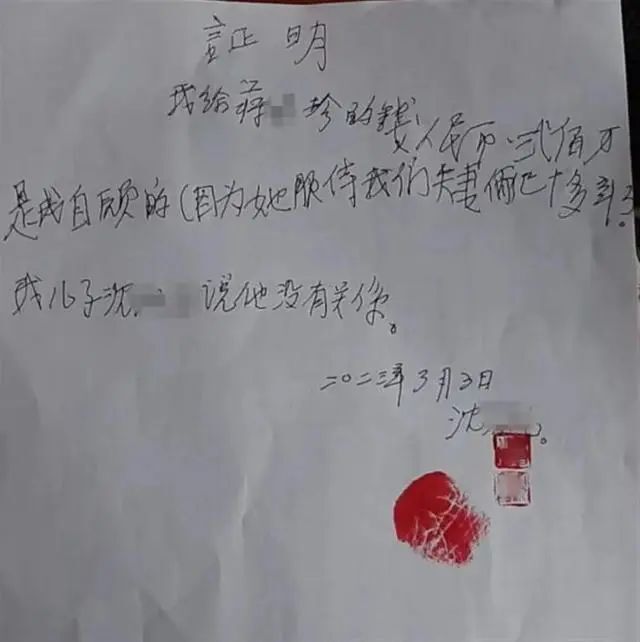 証明
我给蒋 珍的钱人民币:弍佰万
是我自愿的(因为她服侍我们夫妻俩已十多年了.
我儿子沈 说他没有关係。
二〇二三年3月3日
沈 。